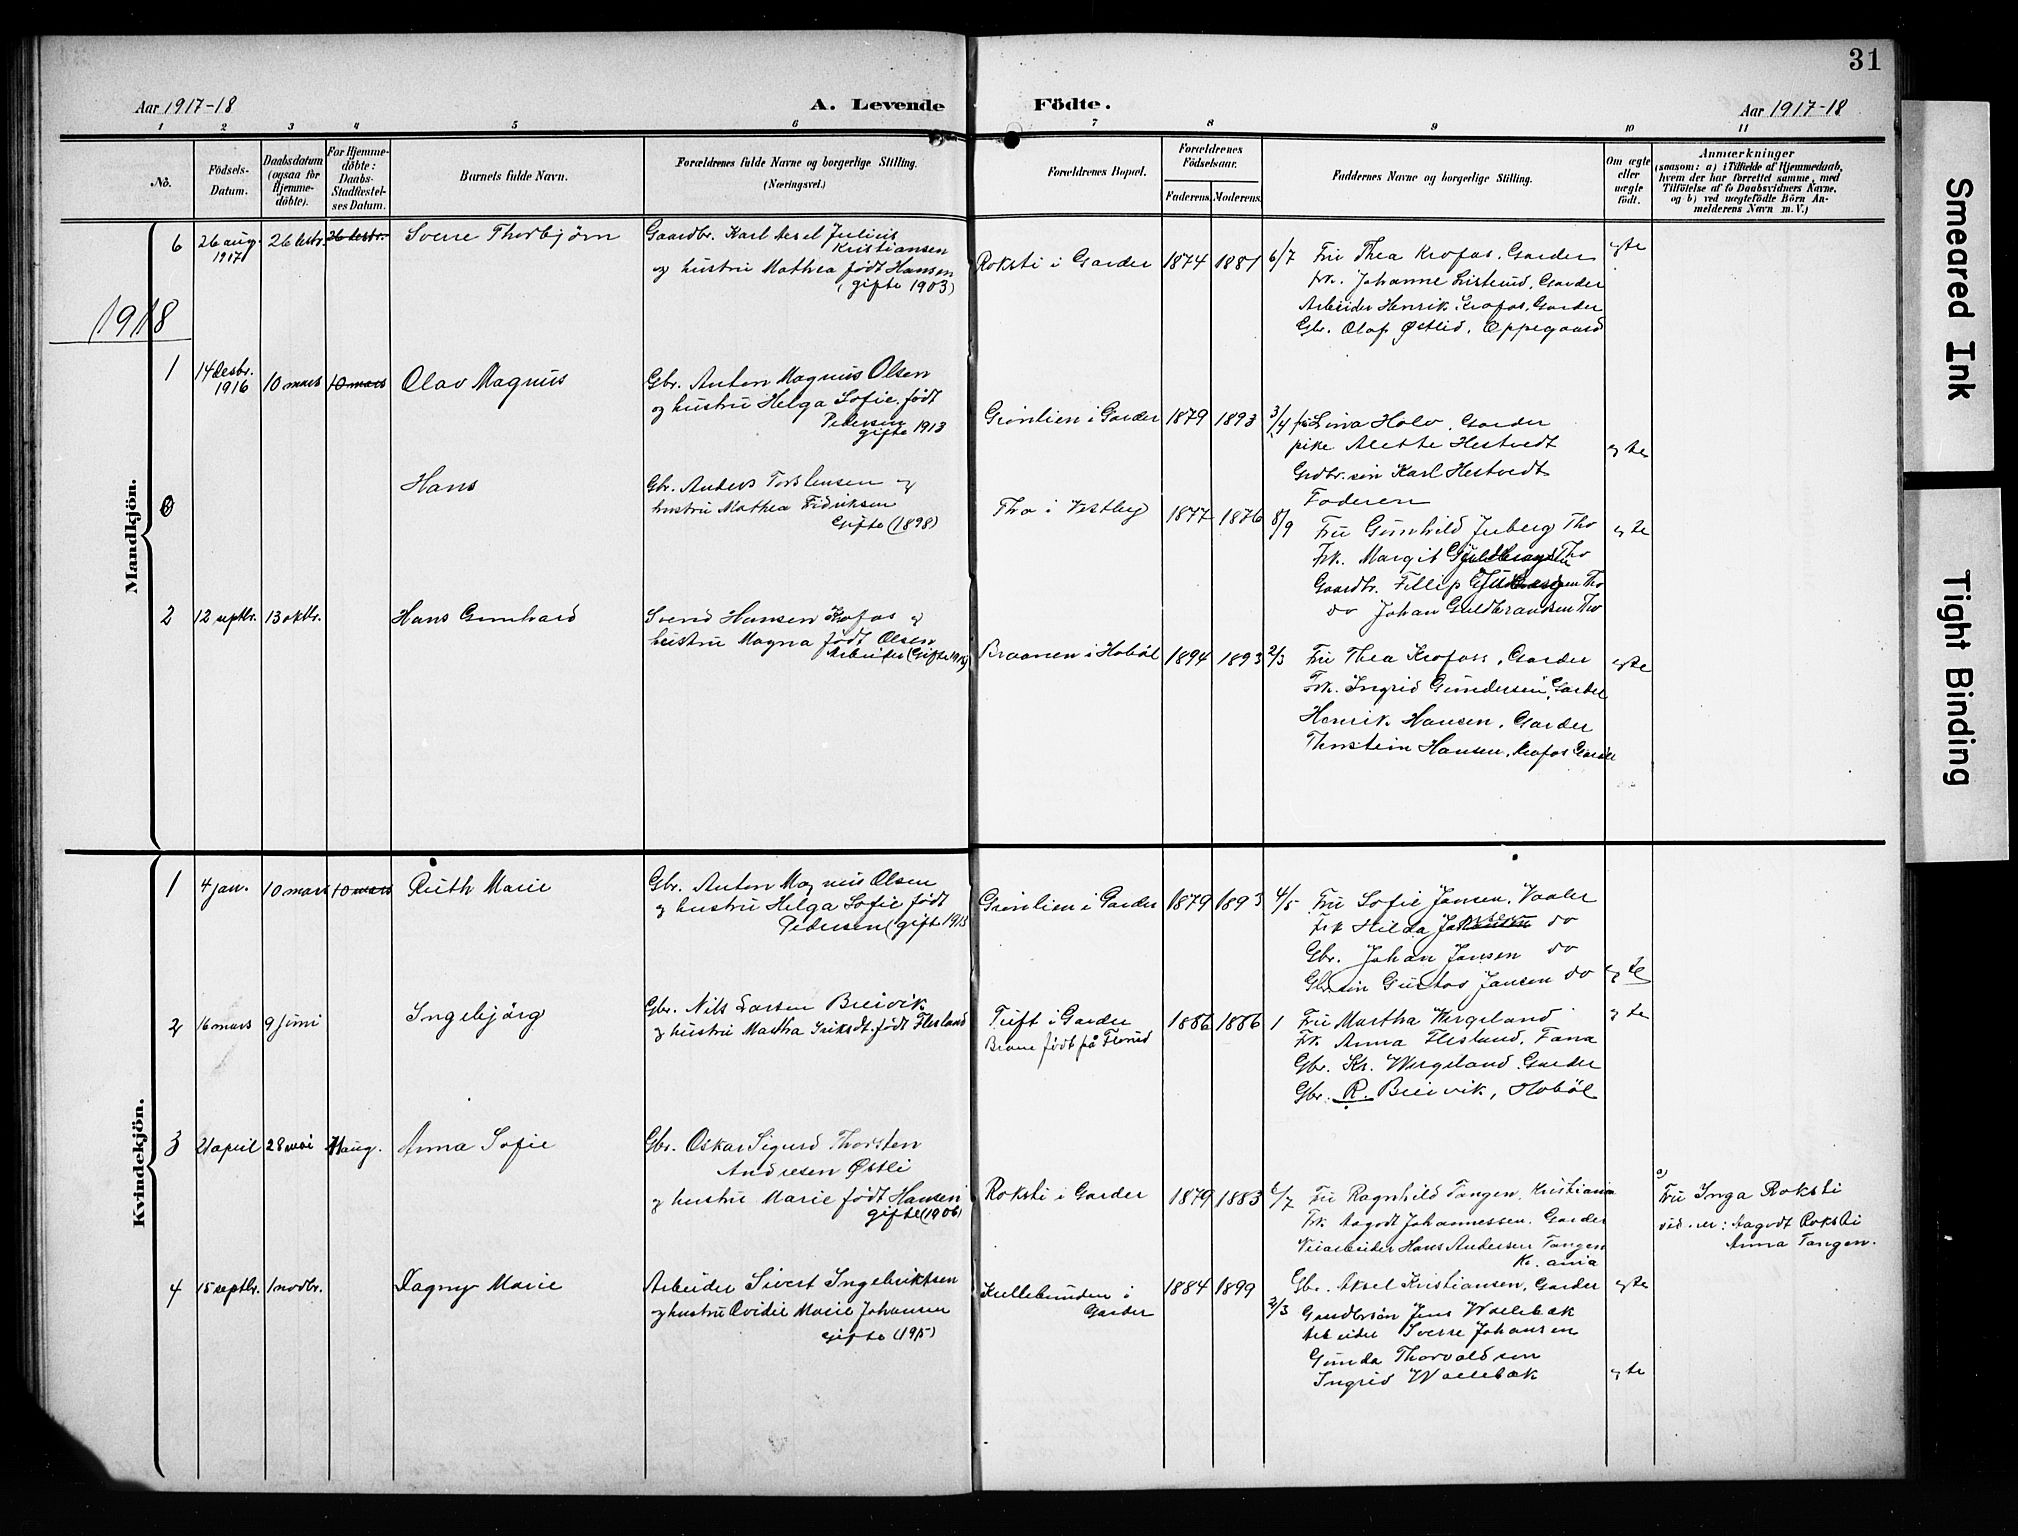 31
Aar 1917-18
A. Levende
Födte.
Aar 1917-18
1 2 3 4 5 6 7 8 9 10 11
No.
Födsels-
Datum.
Daabsdatum
(ogsaa for
Hjemme-
döbte).
For Hjemme-
döbte:
Daabs-
Stadfæstel-
ses Datum.
Barnets fulde Navn.
Forældrenes fulde Navne og borgerlige Stilling.
(Næringsvei.)
Forældrenes Bopæl.
Forældrenes
Födselsaar.
Faderens
Moderens
Faddernes Navne og borgerlige Stilling.
Om ægte
eller
uægte
født.
Anmærkninger
(saasom: a) i Tilfælde af Hjemmedaab,
hvem der har forrettet samme, med
Tilföielse af to Daabsvidners Navne,
og b) ved uægtefödte Börn An-
melderens Navn m. V.)
Mandkjön.
6 26 aug. 1917 26 desbr. 26 desbr.
Sverre Thorbjørn
Gaardbr. Karl Aksel Julius
Kristiansen
og hustru Mathea født Hansen
(gifte 1903)
Roksti i Garder
1874 1881 6/7
Fru Thea Krofos, Garder
Frk. Johanne Listerud, Garder
Arbeider Henrik Krofos, Garder
Gbr. Olaf Østlid, Oppegaard
egte
1918
1 14 desbr. 1916 10 mars 10 mars
Olav Magnus
Gbr. Anton Magnus Olsen
og hustru Helga Sofie født
Pedersen
gifte 1913
Grønlien i Garder
1879 1893 3/4
Lina Holo, Garder
pike Alette Hestvedt
Grdbr. søn Karl Hestvedt
Faderen
egte
Hans
Gbr. Anders Torstensen og
hustru Mathea Fidriksen
Gifte (1898)
Tho i Vestby
1877 1876 8/9
Fru Gunhild Juberg Tho
Frk. Margit Tho
Gaardbr. Fillip Tho
do Johan Guldbrandsen Tho
egte
2 12 septbr. 13 oktbr.
Hans Gunvard
Svend Hansen Krofos og
hustru Magna født Olsen
Arbeider
Braanen i Hobøl
1894 1893 2/3
Fru Thea Krofoss, Garder
Frk. Ingrid Gundersen, Garder
Henrik Hansen, Garder
Thorstein Hansen, Krofos Garder
egte
Kvindekjön.
1 4 jan. 10 mars 10 mars
Ruth Marie
Gbr. Anton Magnus Olsen
og hustru Helga Sofie født
Pedersen (gifte 1913
Grønlien i Garder
1879 1893 4/5
Fru Sofie Jansen, Vaaler
Frk Hilda Jansen do
Gbr. Johan Jansen do
Gbr. søn Gustav Jansen do
egte
2 16 mars 9 juni
Ingebjørg
Gbr. Nils Larsen Breivik
og hustru Martha Eriksdt. født Flesland
Tuft i Garder
Barnet født på Florud
1886 1886 1
Fru Martha Wergeland
Frk Anna Flesland, Fana
Gbr. Kr. Wergeland Garder
Gbr. R. Breivik, Hobøl
egte
3 21 april 28 mai 11 aug.
Anna Sofie
Gbr. Oskar Sigurd Thorsten
Andresen Østli
og hustru Marie født Hansen
gifte (1906)
Roksti i Garder
1879 1883 6/7
Fru Ragnhild Tangen, Kristiania
Frk. Aagodt Johannessen, Garder
Veiarbeider Hans Andersen Tangen
Kr. ania
Gbr. Aksel Kristiansen, Garder
egte
a)
Fru Inga Roksti
vid.er: Aagodt Roksti
Anna Tangen.
4 15 septbr. 1 novbr.
Dagny Marie
Arbeider Sivert Ingebriktsen
og hustru Ovidie Marie Johansen
gifte (1915)
Kullebunden i
Garder
1884 1899 2/3
Gaardbrsøn Jens Wollebæk
Arbeider Sverre Johansen
Gunda Thorvaldsen
Ingrid Wollebæk
egte
Smeared Ink
Tight Binding